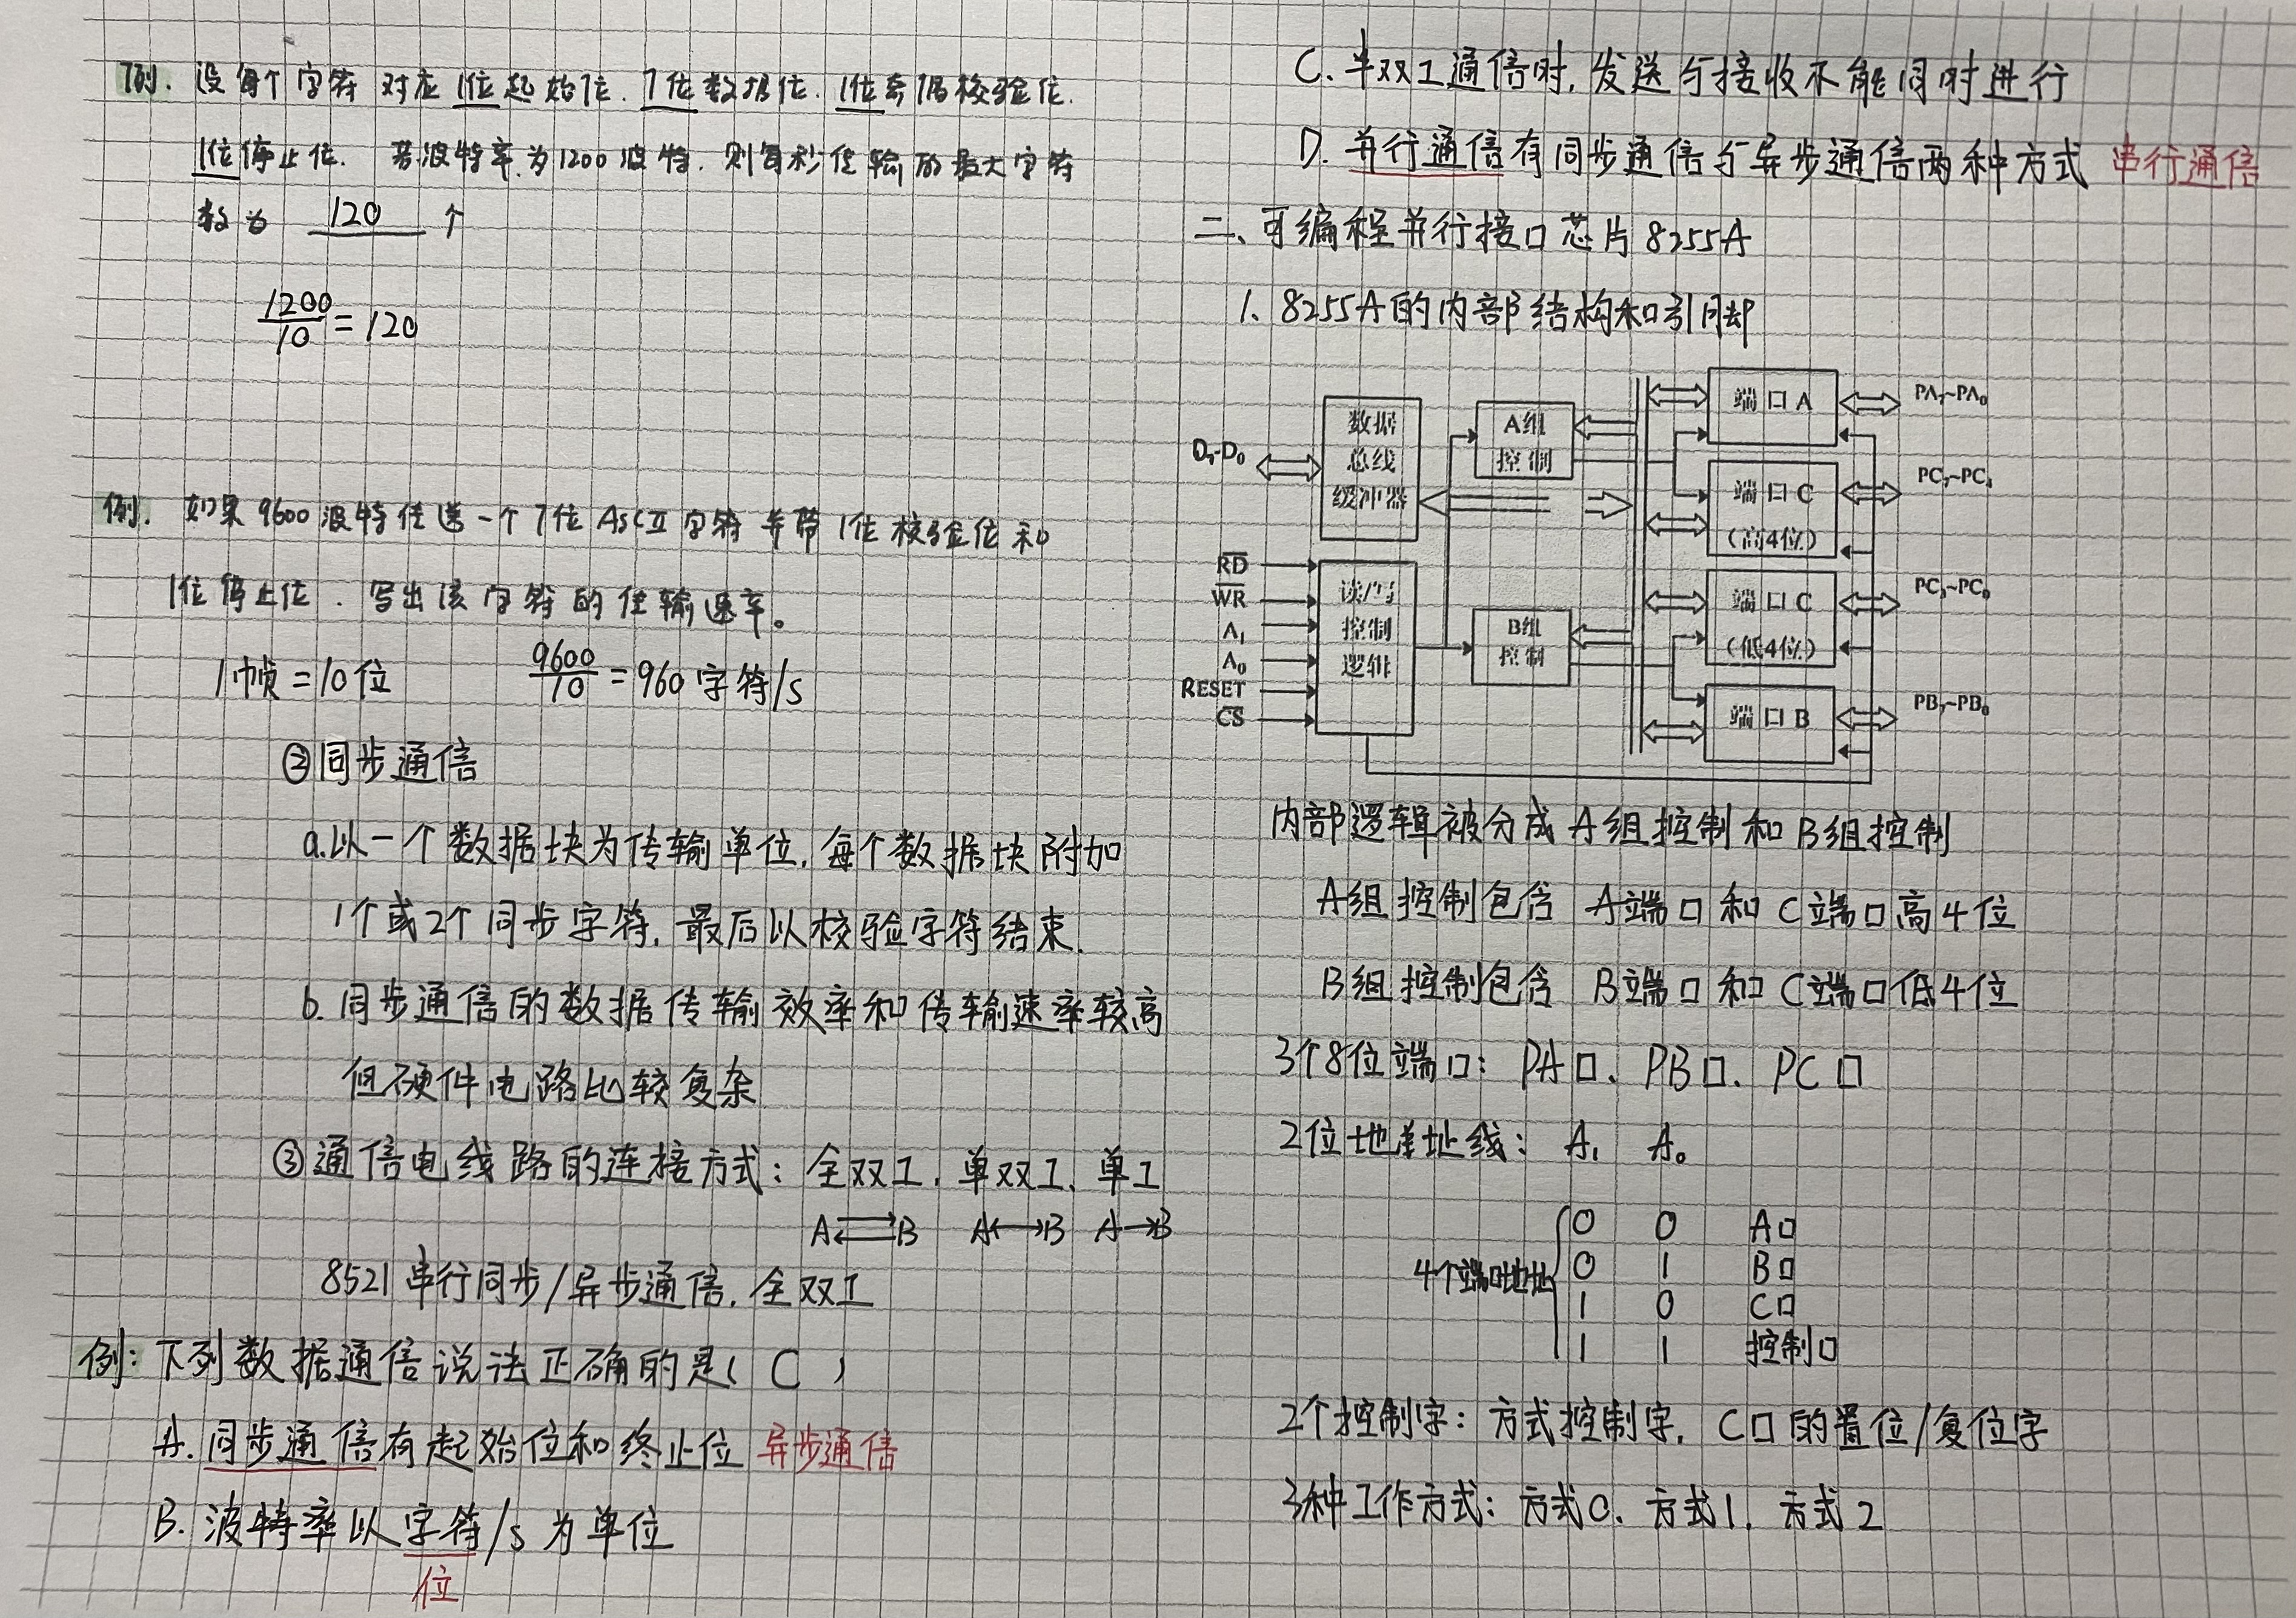 例. 设每个字符对应1位起始位. 7位数据位. 1位奇偶校验位.
1位停止位. 若波特率为1200波特. 则每秒传输的最大字符
数为 120 个
1200/10 = 120
例. 如果9600波特传送一个7位ASCII字符并带1位校验位和
1位停止位. 写出该字符的传输速率。
1帧=10位 9600/10 = 960字符/s
②同步通信
a.以一个数据块为传输单位, 每个数据块附加
1个或2个同步字符, 最后以校验字符结束.
b.同步通信的数据传输效率和传输速率较高
但硬件电路比较复杂
③通信电线路的连接方式: 全双工, 单双工, 单工
A⇄B A↔B A→B
8521串行同步/异步通信, 全双工
例: 下列数据通信说法正确的是( C )
A.同步通信有起始位和终止位 异步通信
B.波特率以字符/s为单位
位
C.半双工通信时, 发送与接收不能同时进行
D.并行通信有同步通信与异步通信两种方式 串行通信
二、可编程并行接口芯片8255A
1、8255A的内部结构和引脚
D7-D0
数据
总线
缓冲器
RD
WR
A1
A0
RESET
CS
读/写
控制
逻辑
A组
控制
B组
控制
端口A
PA7~PA0
端口C
(高4位)
PC7~PC4
端口C
(低4位)
PC3~PC0
端口B
PB7~PB0
内部逻辑被分成A组控制和B组控制
A组控制包含 A端口和C端口高4位
B组控制包含 B端口和C端口低4位
3个8位端口: PA口、PB口、PC口
2位地址线: A1 A0
4个端口地址
0 0 A口
0 1 B口
1 0 C口
1 1 控制口
2个控制字: 方式控制字, C口的置位/复位字
3种工作方式: 方式0、方式1、方式2